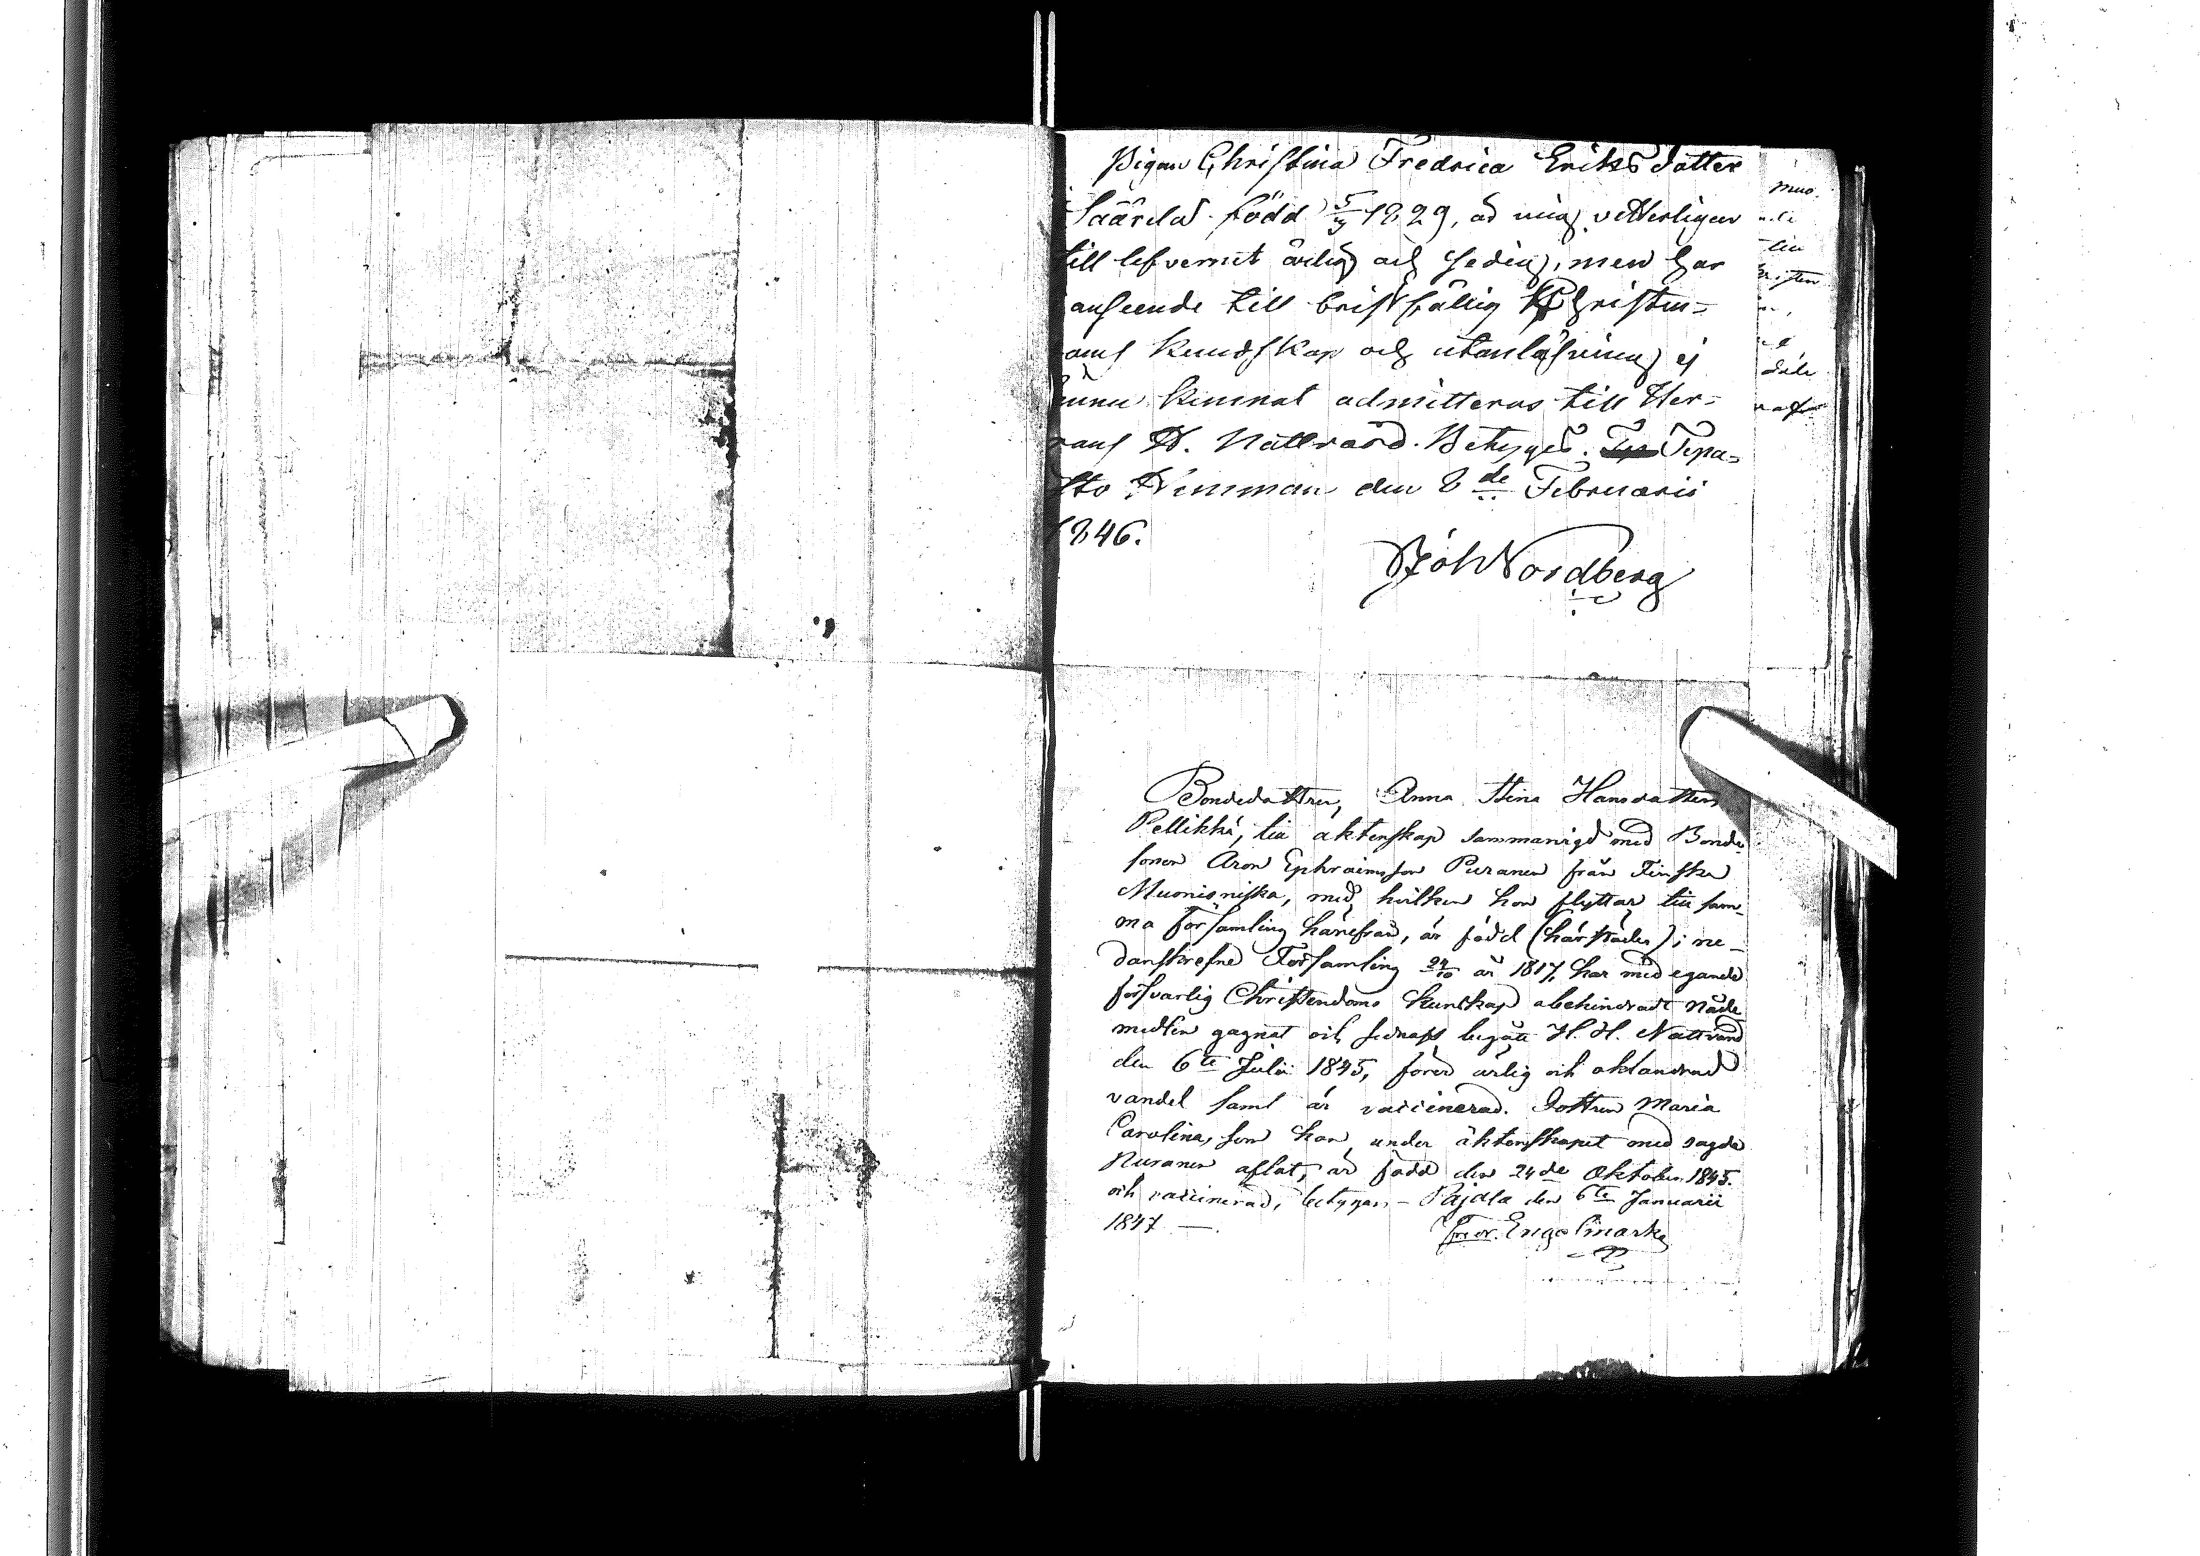 Pigan Christina Fredrica Eriks dotter
Säärela född 5/9 1829, är mig vetterligen
till lefvernet ärlig och sedig, men har
anseende till bristfällig Christen-
doms kundskap och utanläsning ej
ännu kunnat admitteras till Her-
rans H. Nattvard. Betygas. Tepa-
sto Numman den 8de Februarii
1846.
Joh Nordberg
Bondedottren, Anna Stina Hansdotter
Pellikka, till äktenskap sammanvigd med Bonde-
sonen Aron Ephraimsson Puranen från Finska
Muonioniska, med hvilken hon flyttar till sam-
ma församling härifrån, är född (härstädes) i ne-
danskrefne Församling 24/10 år 1817, har med egande
försvarlig Christendoms kunskap obehindradt nåde
medlen gagnat och sednast begått H. H. Nattvard
den 6te Julii 1845, förer ärlig och oklandrad
vandel samt är vaccinerad. Dottren Maria
Carolina, som hon under äktenskapet med sagde
Puranen aflat, är född den 24de Oktober 1845.
och vaccinerad, betygar, - Pajala den 6te Januarii
1847 —
Engelmark